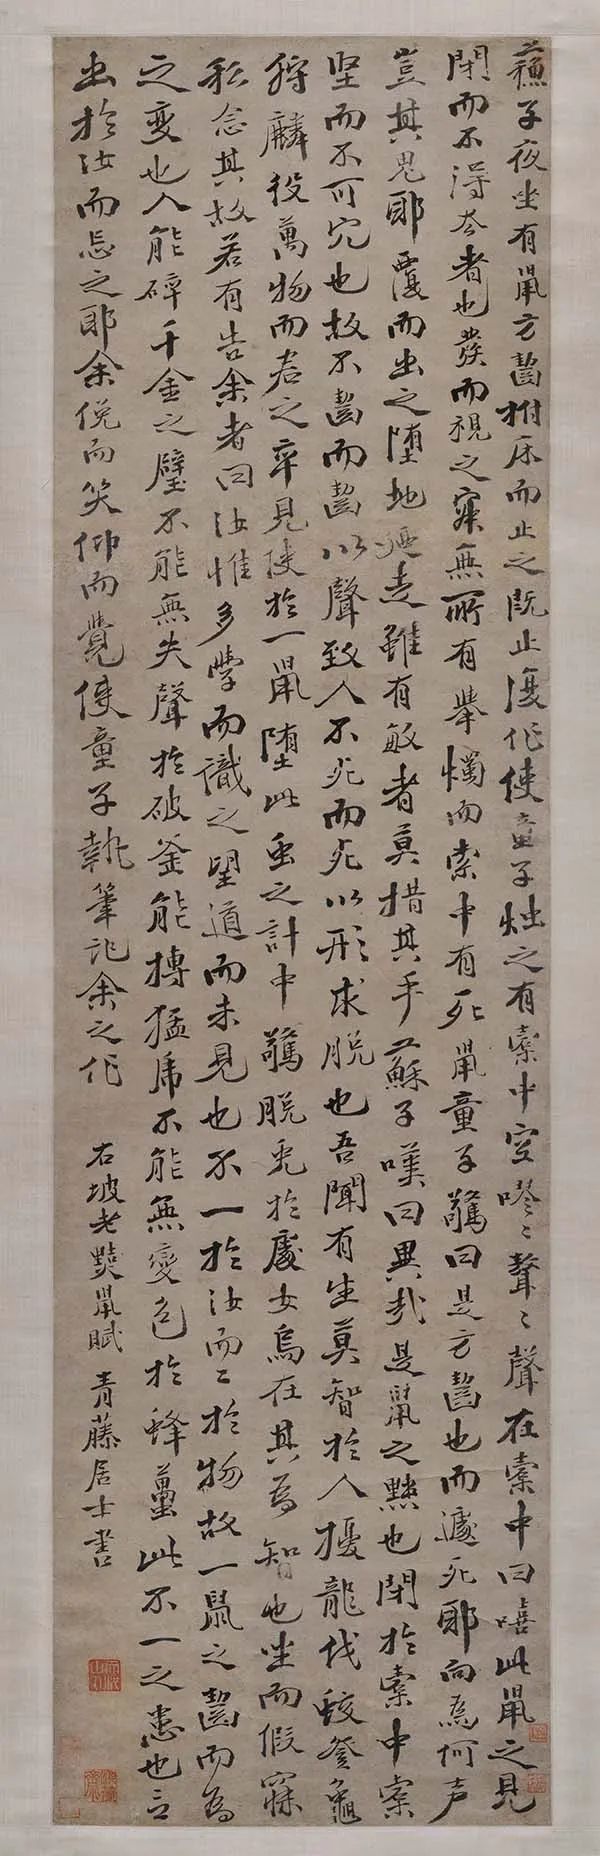 蘇子夜坐有鼠方齧拊床而止之既止復作使童子燭之有橐中空嘐〻聲〻聲在橐中曰嘻此鼠之見
閉而不得去者也發而視之寂無所有舉燭而索中有死鼠童子驚曰是方齧也而遽死耶向為何声
豈其鬼耶覆而出之墮地廼走雖有敏者莫措其手蘇子嘆曰異哉是鼠之黠也閉於橐中橐
堅而不可穴也故不齧而齧以聲致人不死而死以形求脱也吾聞有生莫智於人擾龍伐蛟登龜
狩麟役萬物而君之卒見使於一鼠墮此虫之計中驚脱兎於處女烏在其為智也坐而假寐
私念其故若有告余者曰汝惟多學而識之望道而未見也不一於汝而二於物故一鼠之齧而為
之变也人能碎千金之璧不能無失聲於破釜能搏猛虎不能無變色於蜂蠆此不一之患也言
出於汝而忘之耶余俛而笑仰而覺使童子執筆記余之作
右坡老黠鼠賦 青藤居士書